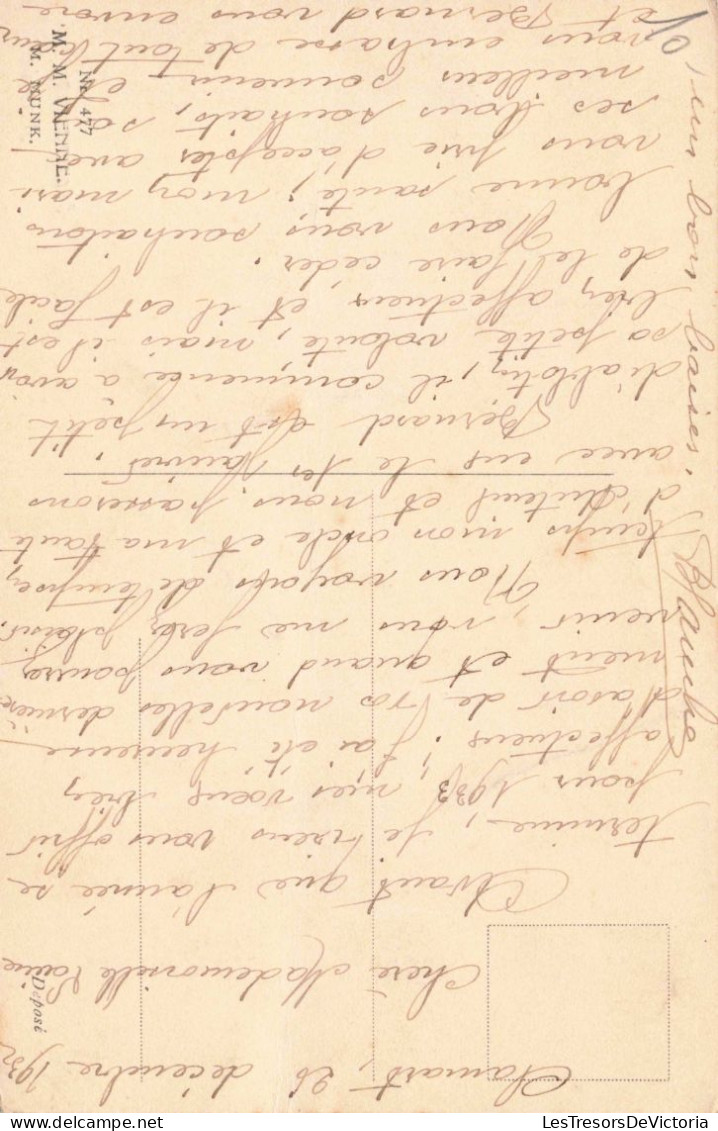 Clamart, 26 décembre 1932
Chère Mademoiselle
Avant que l'année se
termine, je viens vous offrir
pour 1933, mes vœux bien
affectueux; j'ai été heureuse
d'avoir de vos nouvelles dernière
ment et quand vous pourrez
venir, vous me ferez plaisir.
Nous voyons de temps en
temps mon oncle et ma tante
d'Auteuil et nous passerons
avec eux le 1er Janvier.
Bernard est un petit
diablotin, il commence à avoir
sa petite volonté, mais il est
bien affectueux et il est facile
de le faire céder.
Nous vous souhaitons
bonne santé; mon mari
vous prie d'accepter avec
ses bons souhaits, son
meilleur souvenir, et je
vous embrasse de tout cœur
et Bernard vous envoie
un bon baiser.
Blanche
10
Nr. 477
M. M. VIENNE.
M. MUNK.
Déposé
LesTresorsDeVictoria.com